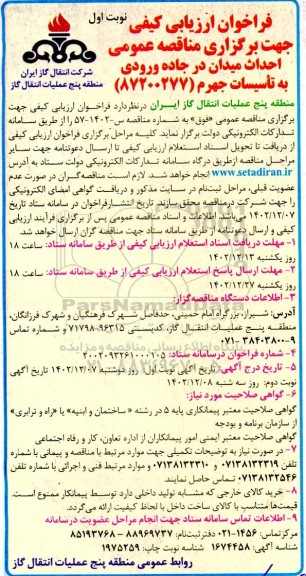 نوبت اول
فراخوان ارزیابی کیفی
جهت برگزاری مناقصه عمومی
احداث میدان در جاده ورودی
به تأسیسات جهرم (۸۷۲۰۰۲۷۷)
شرکت انتقال گاز ایران
منطقه پنج عملیات انتقال گاز
منطقه پنج عملیات انتقال گاز ایران درنظردارد فراخوان ارزیابی کیفی جهت
برگزاری مناقصه عمومی «فوق» به شماره مناقصه س-۱۴۰۲-۵۷ را از طریق سامانه
تدارکات الکترونیکی دولت برگزار نماید. کلیه مراحل برگزاری فراخوان ارزیابی کیفی
از دریافت تا تحویل اسناد استعلام ارزیابی کیفی تا ارسال دعوتنامه جهت سایر
مراحل مناقصه ازطریق درگاه سامانه تدارکات الکترونیکی دولت ستاد به آدرس
www.setadiran.ir انجام خواهد شد. لازم است مناقصه‌گران در صورت عدم
عضویت قبلی، مراحل ثبت‌نام در سایت مذکور و دریافت گواهی امضای الکترونیکی
را جهت شرکت درمناقصه محقق سازند. تاریخ انتشارفراخوان در سامانه ستاد تاریخ
۱۴۰۲/۱۲/۰۷ می‌باشد. اطلاعات و اسناد مناقصه عمومی پس از برگزاری فرآیند ارزیابی
کیفی و ارسال دعوتنامه از طریق سامانه ستاد جهت مناقصه گران ارسال خواهد شد.
۱- مهلت دریافت اسناد استعلام ارزیابی کیفی از طریق سامانه ستاد: ساعت ۱۸
روز یکشنبه ۱۴۰۲/۱۲/۱۳
۲- مهلت ارسال پاسخ استعلام ارزیابی کیفی از طریق سامانه ستاد: ساعت ۱۸
روز یکشنبه ۱۴۰۲/۱۲/۲۷
۳- اطلاعات دستگاه مناقصه‌گزار:
آدرس: شیراز، بزرگراه امام خمینی، حدفاصل شهرک فرهنگیان و شهرک فرزانگان،
منطقه پنج عملیات انتقال گاز، کدپستی ۹۶۳۱۵-۷۱۷۹۸ و شماره تماس
۰۷۱-۳۸۴۰۳۸۰۰-۹
۴- شماره فراخوان درسامانه ستاد: ۲۰۰۲۰۹۳۲۶۱۰۰۰۲۰۵
۵- تاریخ درج آگهی: تاریخ آگهی نوبت اول: روز دوشنبه ۱۴۰۲/۱۲/۰۷ تاریخ آگهی
نوبت دوم: روز سه شنبه ۱۴۰۲/۱۲/۰۸
۶- گواهی صلاحیت مورد نیاز:
گواهی صلاحیت معتبر پیمانکاری پایه ۵ در رشته «ساختمان و ابنیه» یا «راه و ترابری»
از سازمان برنامه و بودجه
گواهی صلاحیت معتبر ایمنی امور پیمانکاران از اداره تعاون، کار و رفاه اجتماعی
۷- در صورت نیاز به توضیحات تکمیلی جهت موارد مرتبط با مناقصه و پیمانی با شماره
تلفن ۰۷۱۳۸۱۳۲۳۱۹ و ۰۷۱۳۸۱۳۲۳۱۰ و موارد مرتبط فنی و اجرائی با شماره تلفن
۰۷۱۳۸۱۳۲۵۴۶ تماس حاصل نمایند.
۸- خرید کالای خارجی که مشابه تولید داخلی دارد توسط پیمانکار ممنوع است.
قیمت‌ها متناسب با کالای ساخت داخل با لحاظ کیفیت ارائه می‌گردد.
۹- اطلاعات تماس سامانه ستاد جهت انجام مراحل عضویت درسامانه
مرکزتماس: ۱۴۵۶-۰۲۱ دفترثبت‌نام: ۸۸۹۶۹۷۳۷ – ۸۵۱۹۳۷۶۸
شناسه آگهی: ۱۶۷۴۴۵۸ شناسه نوبت چاپ: ۱۹۷۵۲۵۹
روابط عمومی منطقه پنج عملیات انتقال گاز